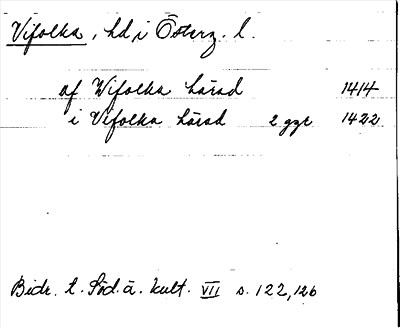 Vifolka, hd i Österg. l.
af Wifolka härad 1414
i Vifolka härad 2 ggr 1422
Bidr. t. Söd.ä. kult. VII s. 122, 126